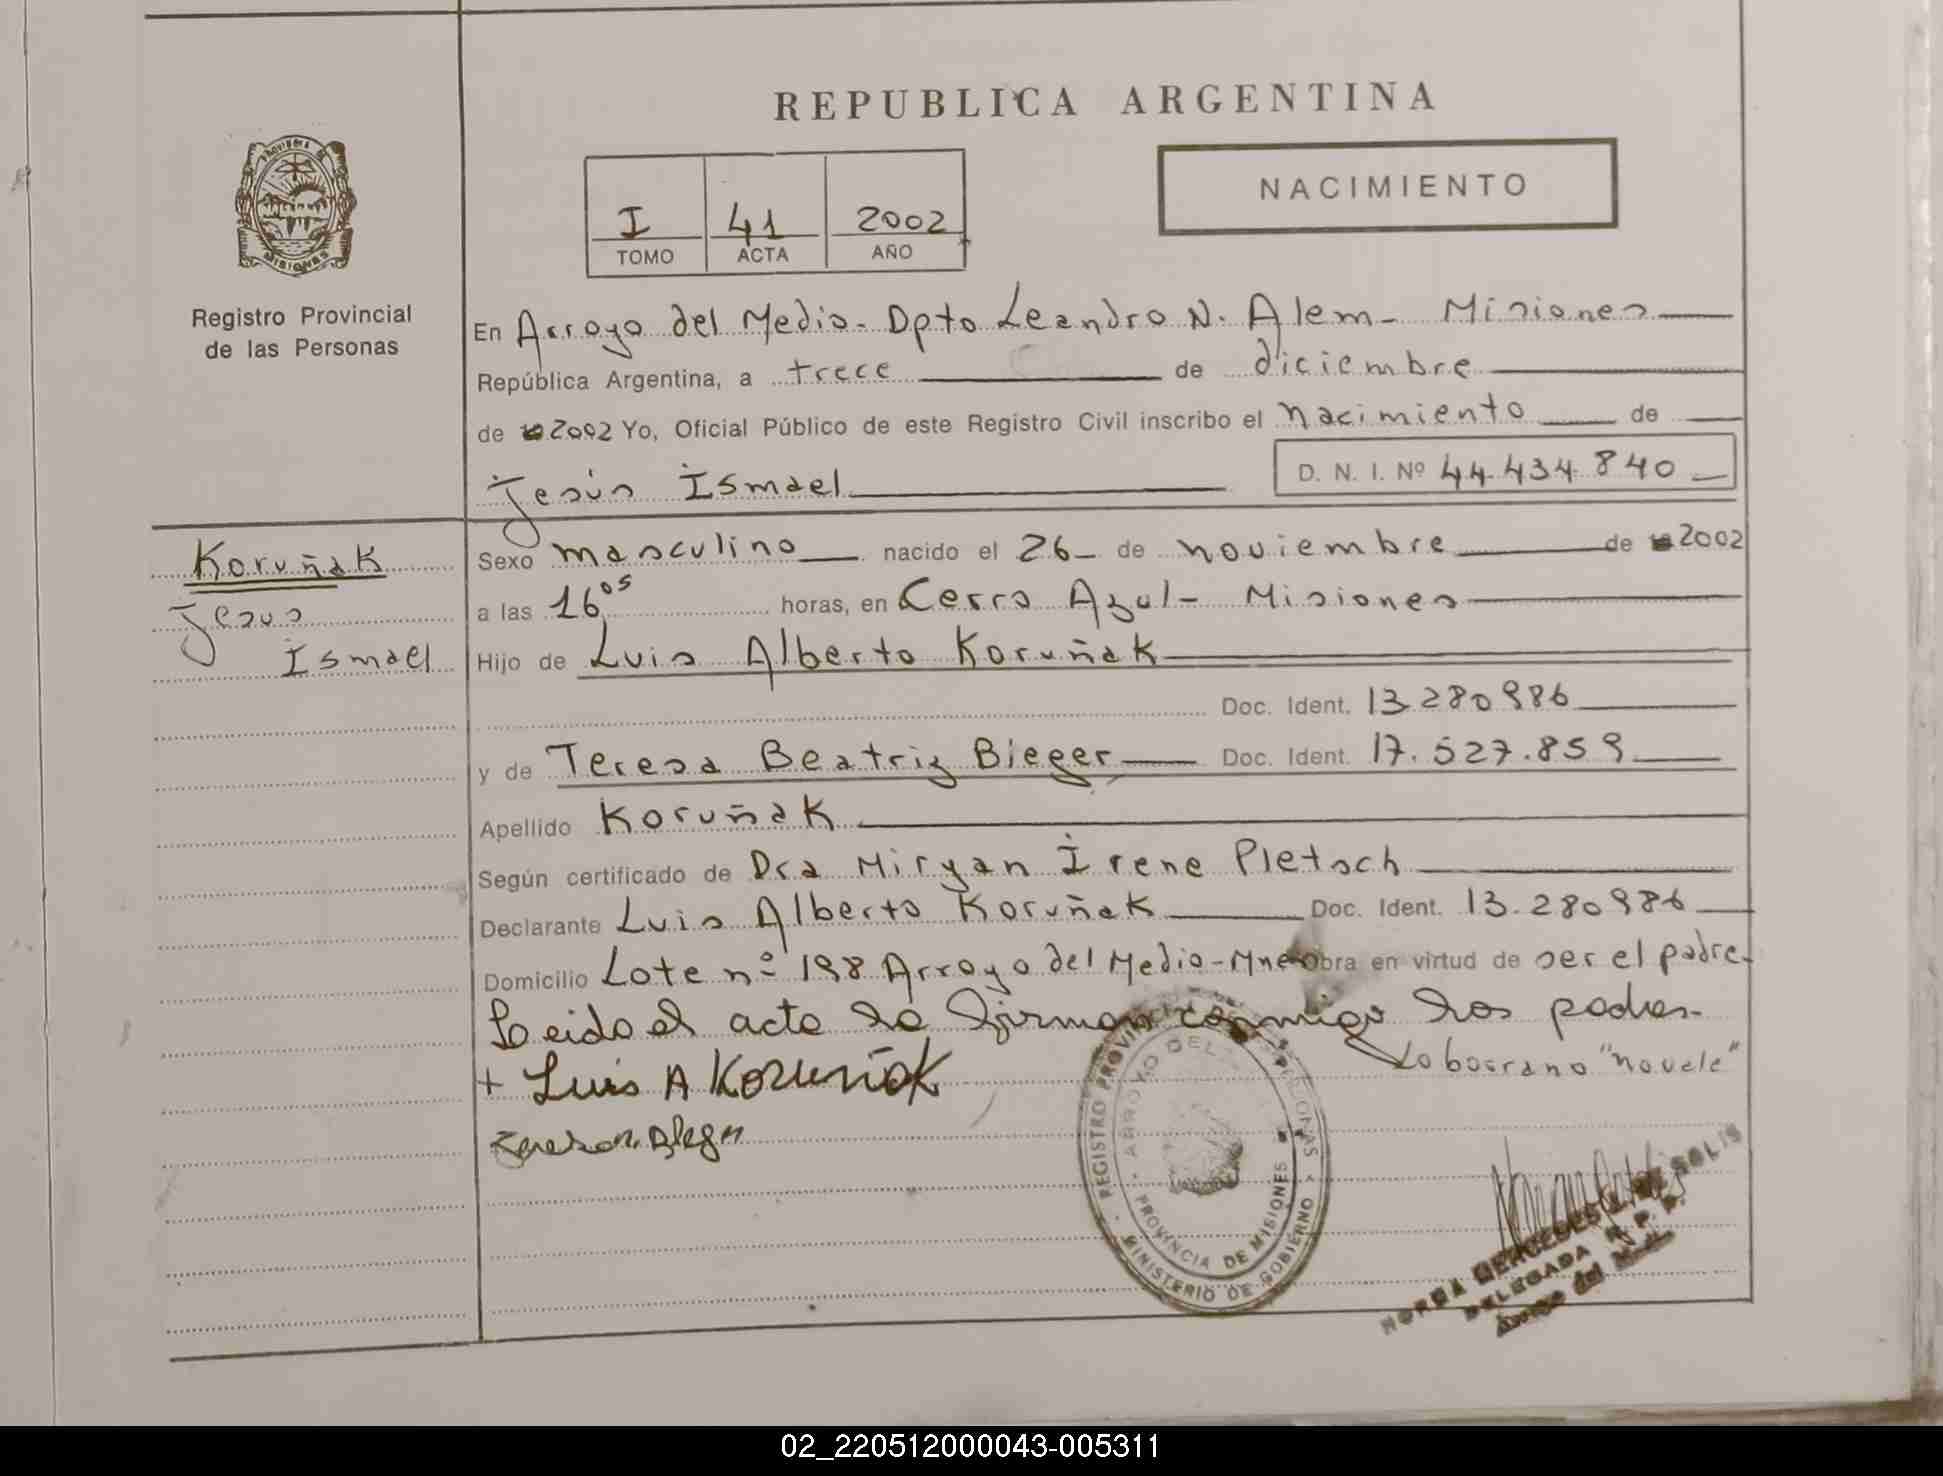 REPUBLICA ARGENTINA
PROVINCIA
MISIONES
Registro Provincial
de las Personas
I 41 2002
TOMO ACTA AÑO
NACIMIENTO
En Arroyo del Medio - Dpto Leandro N. Alem - Misiones
República Argentina, a trece de diciembre
de 2002 Yo, Oficial Público de este Registro Civil inscribo el nacimiento de
Jesús Ismael D. N. I. Nº 44.434.840
Koruñak
Jesus
Ismael
Sexo masculino nacido el 26 de noviembre de 2002
a las 16⁰⁵ horas, en Cerro Azul - Misiones
Hijo de Luis Alberto Koruñak
Doc. Ident. 13.280.986
y de Teresa Beatriz Bieger Doc. Ident. 17.527.859
Apellido Koruñak
Según certificado de Dra Miryan Irene Pletsch
Declarante Luis Alberto Koruñak Doc. Ident. 13.280.986
Domicilio Lote nº 198 Arroyo del Medio - Mnes obra en virtud de ser el padre.
Leido el acta la firman conmigo los padres.
"novele"
+ Luis A Koruñak
REGISTRO PROVINCIAL DE LAS PERSONAS
ARROYO DEL
PROVINCIA DE MISIONES
MINISTERIO DE GOBIERNO
NORMA MERCEDES DE SOLIS
DELEGADA R. P. P.
Arroyo del Medio
02_220512000043-005311